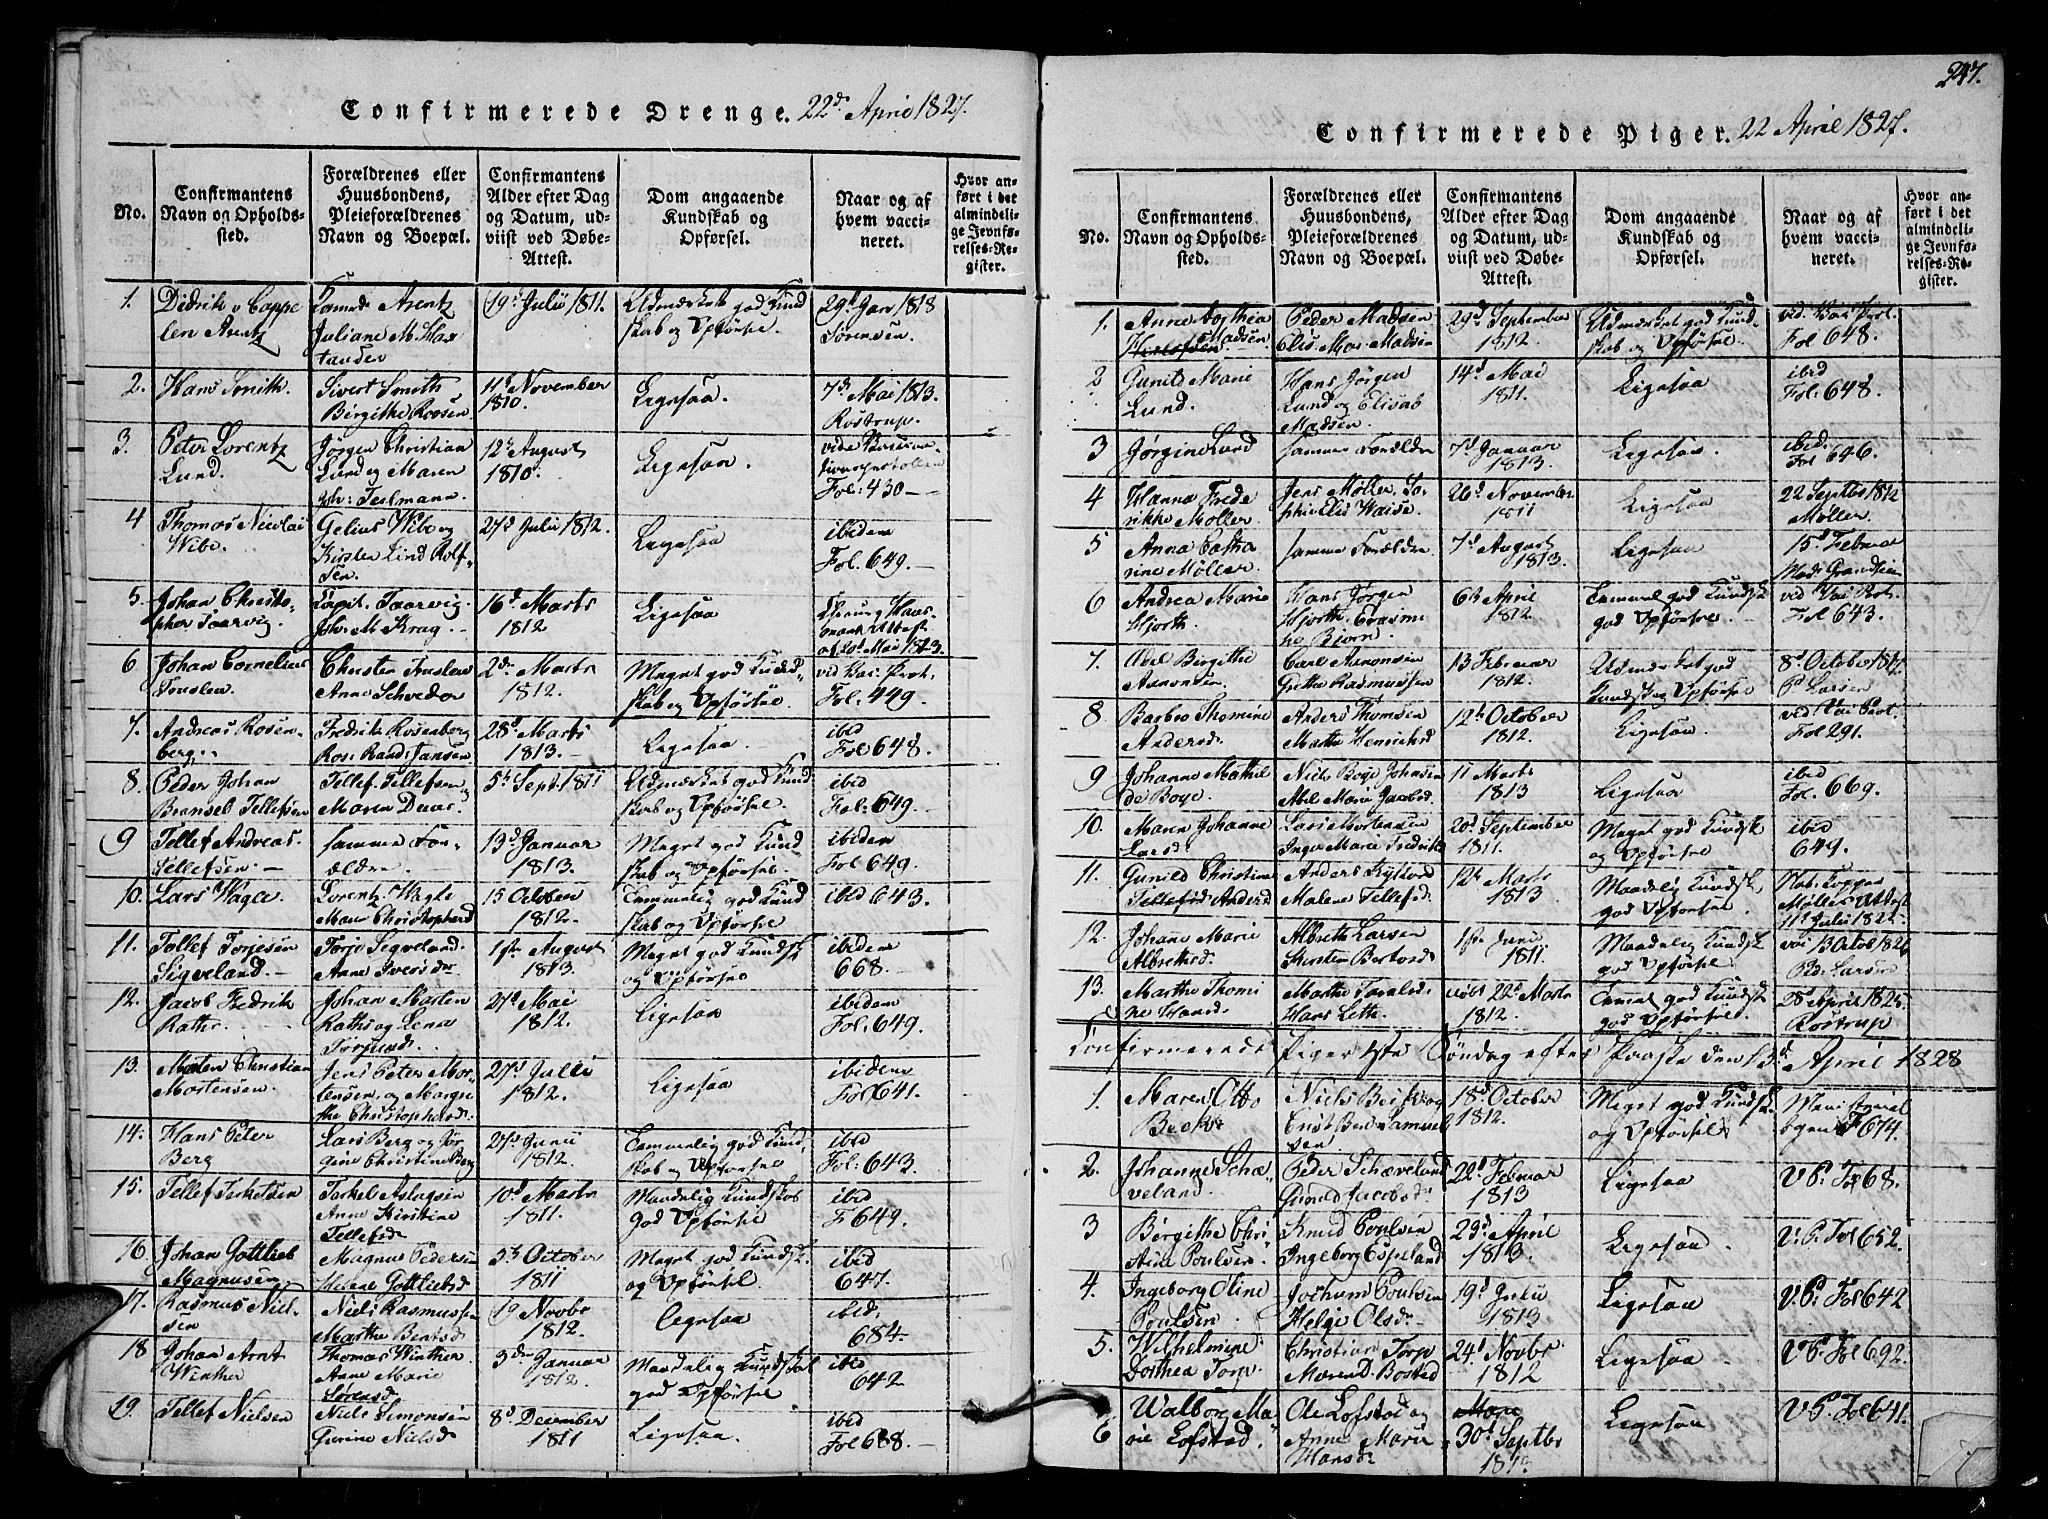 Confirmerede Drenge. 22d April 1827.
No.
Confirmantens
Navn og Opholds-
sted.
Forældrenes eller
Huusbondens,
Pleieforældrenes
Navn og Boepæl.
Confirmantens
Alder efter Dag
og Datum, ud-
viist ved Døbe-
Attest.
Dom angaaende
Kundskab og
Opførsel.
Naar og af
hvem vacci-
neret.
Hvor an-
ført i det
almindeli-
ge Jevnfø-
relses-Re-
gister.
1. Didrik v Cappe
len Arentz
Arentz
Juliane M.
19d Julii 1811.
Udmærket god Kund
skab og Opførsel.
29d Jan 1818
Sörensen.
2. Hans Smith.
Sivert Smith
Birgithe Roosen
11d November
1810.
Ligesaa.
7d Mai 1813.
Rostrup.
3. Peter Lorentz
Lund.
Jørgen Christian
Lund og Maren
Teilmann.
12t August
1810.
Ligesaa.
Fol: 430 —
4 Thomas Nicolai
Wibe.
Gelius Wibe og
Kirsten Lind Rolf-
sen.
27d Julii 1812.
Ligesaa
ibidem
Fol. 649. —
5. Johan Christo-
pher Taarvig.
Capit. Taarvig.
Joh: M. Krag. —
16d Marts
1812.
Ligesaa
6. Johan Cornelius
Tönslen.
Christen Tönslen
Anne Schreder
2den Marts
1812.
Meget god Kund-
skab og Opførsel.
vid Vac: Prot.
Fol: 449.
7. Andreas Rosen-
berg. —
Fredrik Rosenberg
Ros: Rand: Jansen
28d Marts
1813.
Ligesaa.
ibid
Fol 648.
8. Peder Johan
Bransel Tellefsen
Tellef Tellefsen og
Maren Duus.
5t Sept. 1811
Udmærket god Kund
skab og Opførsel.
ibid
Fol: 649.
9 Tellef Andreas
Tellefsen. —
samme For-
ældre.
13d Januar
1813.
Meget god Kund
skab og Opførsel.
ibidem
Fol 649.
10. Lars Wagle.
Lorentz Wagle
Maren Christophersd
15 October
1812.
Temmelig god Kund
skab og Opførsel
ibid 643.
11. Tollef Torjesen
Sigveland. —
Torjo Sigveland.
Anne Iversdr
1ste August
1813.
Meget god Kundsk
og Opførsel
ibidem
668.
12. Jacob Fredrik
Rathe. —
Johan Morten
Rathe og Lena
27d Mai
1812.
Ligesaa
ibidem
Fol: 649.
13. Morten Christian
Mortensen.
Jens Peter Mor-
tensen, og Margre
the Christophersd.
27d Julii
1812.
Ligesaa
ibidem
Fol 641.
14. Hans Peter
Berg
Lars Berg og Jör
gine Christine Berg
27d Junii
1812.
Temmelig god Kund
skab og Opførsel
ibid
Fol: 643.
15. Tellef Terkelsen
Terkel Aslagsen
Anne Kirstine
Tellefsd
10d Marts
1811.
Maadelig Kundskab
god Opførsel
ibid
F 649.
16 Johan Gottlieb
Magnusen
Magnus Pedersen
Helene Gottliebsd
3d October
1811
Meget god Kundsk.
og Opførsel
ibid
647.
17. Rasmus Niel-
sen
Niels Rasmussen
Marthe Berntsd
19 Novbr
1812.
Ligesaa
ibid.
684.
18 Johan Arnt
Winther
Thomas Winther
Anne Marie
Sörensd
3den Januar
1812.
Maadelig Kundskab
god Opførsel
ibid
642
19. Tellef Nielsen
Niels Simonsen
Gurine Nielsd
8d December
1811
Ligesaa.
ibid
Fol 688.
247.
Confirmerede Piger. 22 April 1827.
No.
Confirmantens
Navn og Opholds-
sted.
Forældrenes eller
Huusbondens,
Pleieforældrenes
Navn og Boepæl.
Confirmantens
Alder efter Dag
og Datum, ud-
viist ved Døbe-
Attest.
Dom angaaende
Kundskab og
Opførsel.
Naar og af
hvem vacci-
neret.
Hvor an-
ført i det
almindeli-
ge Jevnfø-
relses-Re-
gister.
1. Anne Sophia
Madsen
Peder Madsen
Elis. Mar. Madsen
29d September
1812.
Udmærket god Kund-
skab og Opførsel.
vid Vac Prot.
Fol 648.
2 Gunild Marie
Lund.
Hans Jörgen
Lund og Elisab
Madsen
14d Mai
1811.
Ligesaa
ibid
Fol: 648.
3 Jörgine Lund
samme Forældre
7d Januar
1813.
Ligesaa
ibid.
Fol 646.
4 Hanna Frede
rikke Møller.
Jens Møller. So-
phie Elis Waise.
26d November
1811
Ligesaa
22 Septbr 1812
Møller.
5 Anna Catha
rine Møller
samme Forældre
7d August
1813.
Ligesaa
15d Februar
6 Andrea Marie
Hjorth.
Hans Jörgen
Hjorth. Erasmi
ne Bjorn.
6t April
1812
Temmel god Kundsk
god Opførsel. —
vid Vac Prot.
Fol 643.
7. Abel Birgithe
Aanonsen
Carl Aanonsen
Grethe Rasmussen
13 Februar
1812.
Udmærket god
Kundsk og Opførsel
8d October 1817.
P Larsen
8 Barbro Thomine
Andersd.
Anders Thomsen
Marthe Henriksd
12t October
1812.
Ligesaa
ved Vac Prot.
Fol 291.
9 Johanne Mathil
de Boye.
Niels Boye Johnsen
Abel Marie Jacobsd.
11 Marts
1813
Ligesaa
ibid
Fol. 669.
10. Maren Johanne
Larsd.
Lars Mortensen
Inger Marie Fredriks
20d September
1811.
Meget god Kundsk
og Opførsel
ibid
649.
11. Gunild Christine
Tellefsd Andersd
Anders
Malene Tellefsd.
12t Marts
1813
Maadelig Kundsk
god Opførsel.
Møllers Attest
11d Julii 1825.
12. Johanne Marie
Albrethsd.
Albreth Larsen
Kirsten Bertosd.
1ste Juni
1811.
Maadelig Kundsk
god Opførsel.
vac 13 Octob 1826
Ped. Larsen
13. Marthe Thomi
ne Hansd.
Marthe Taralsd.
Hans Leth.
døbt 22d Marts
1812.
Temmel god Kundsk
god Opførsel
28 April 1825.
Rostrup
Confirmerede Piger 1ste Söndag efter Paaske den 13d April 1828
1. Maren Otto
Beck.
Niels Beck og
18d October
1812.
Meget god Kundsk
og Opførsel
F 674.
2. Johanne Schæ-
veland.
Peder Schæveland
Gunild Jacobsd.
22d Februar
1813
Ligesaa
V P: Fol 68.
3 Børgithe Chri-
stine Poulsen.
Knud Poulsen
Ingeborg Espeland
23d April
1813.
Ligesaa
V: P: Fol 652.
4. Ingeborg Oline
Poulsen.
Jochum Poulsen
Helge Olsdr
19d Julii
1813
Ligesaa
V P: Fol 642
5. Wilhelmine
Dorthea Torp.
Christian Torp
Maren D. Bosted
24d Novbr
1812
Ligesaa
V P. Fol 692.
6 Walborg Ma-
rie Lofsted.
Ole Lofsted og
Anne Marie
Hansdr
30d Septbr
Ligesaa
V P. Fol 641.